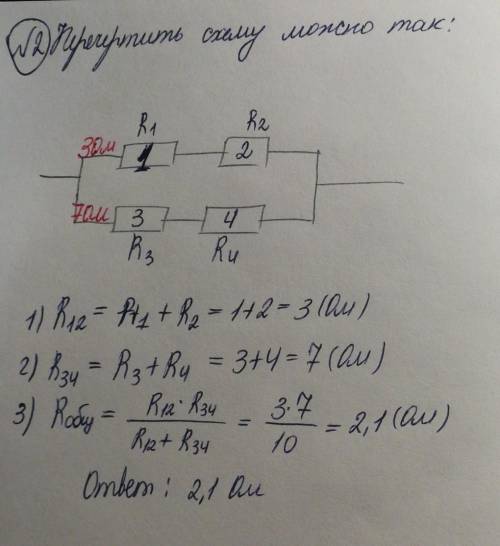 №2 Перечертить схему можно так:
R1 R2
3Ом 1 2
7Ом 3 4
R3 R4
1) R12 = R1 + R2 = 1+2 = 3 (Ом)
2) R34 = R3 + R4 = 3+4 = 7 (Ом)
3) Rобщ = R12 · R34 / R12 + R34 = 3·7 / 10 = 2,1 (Ом)
Ответ: 2,1 Ом